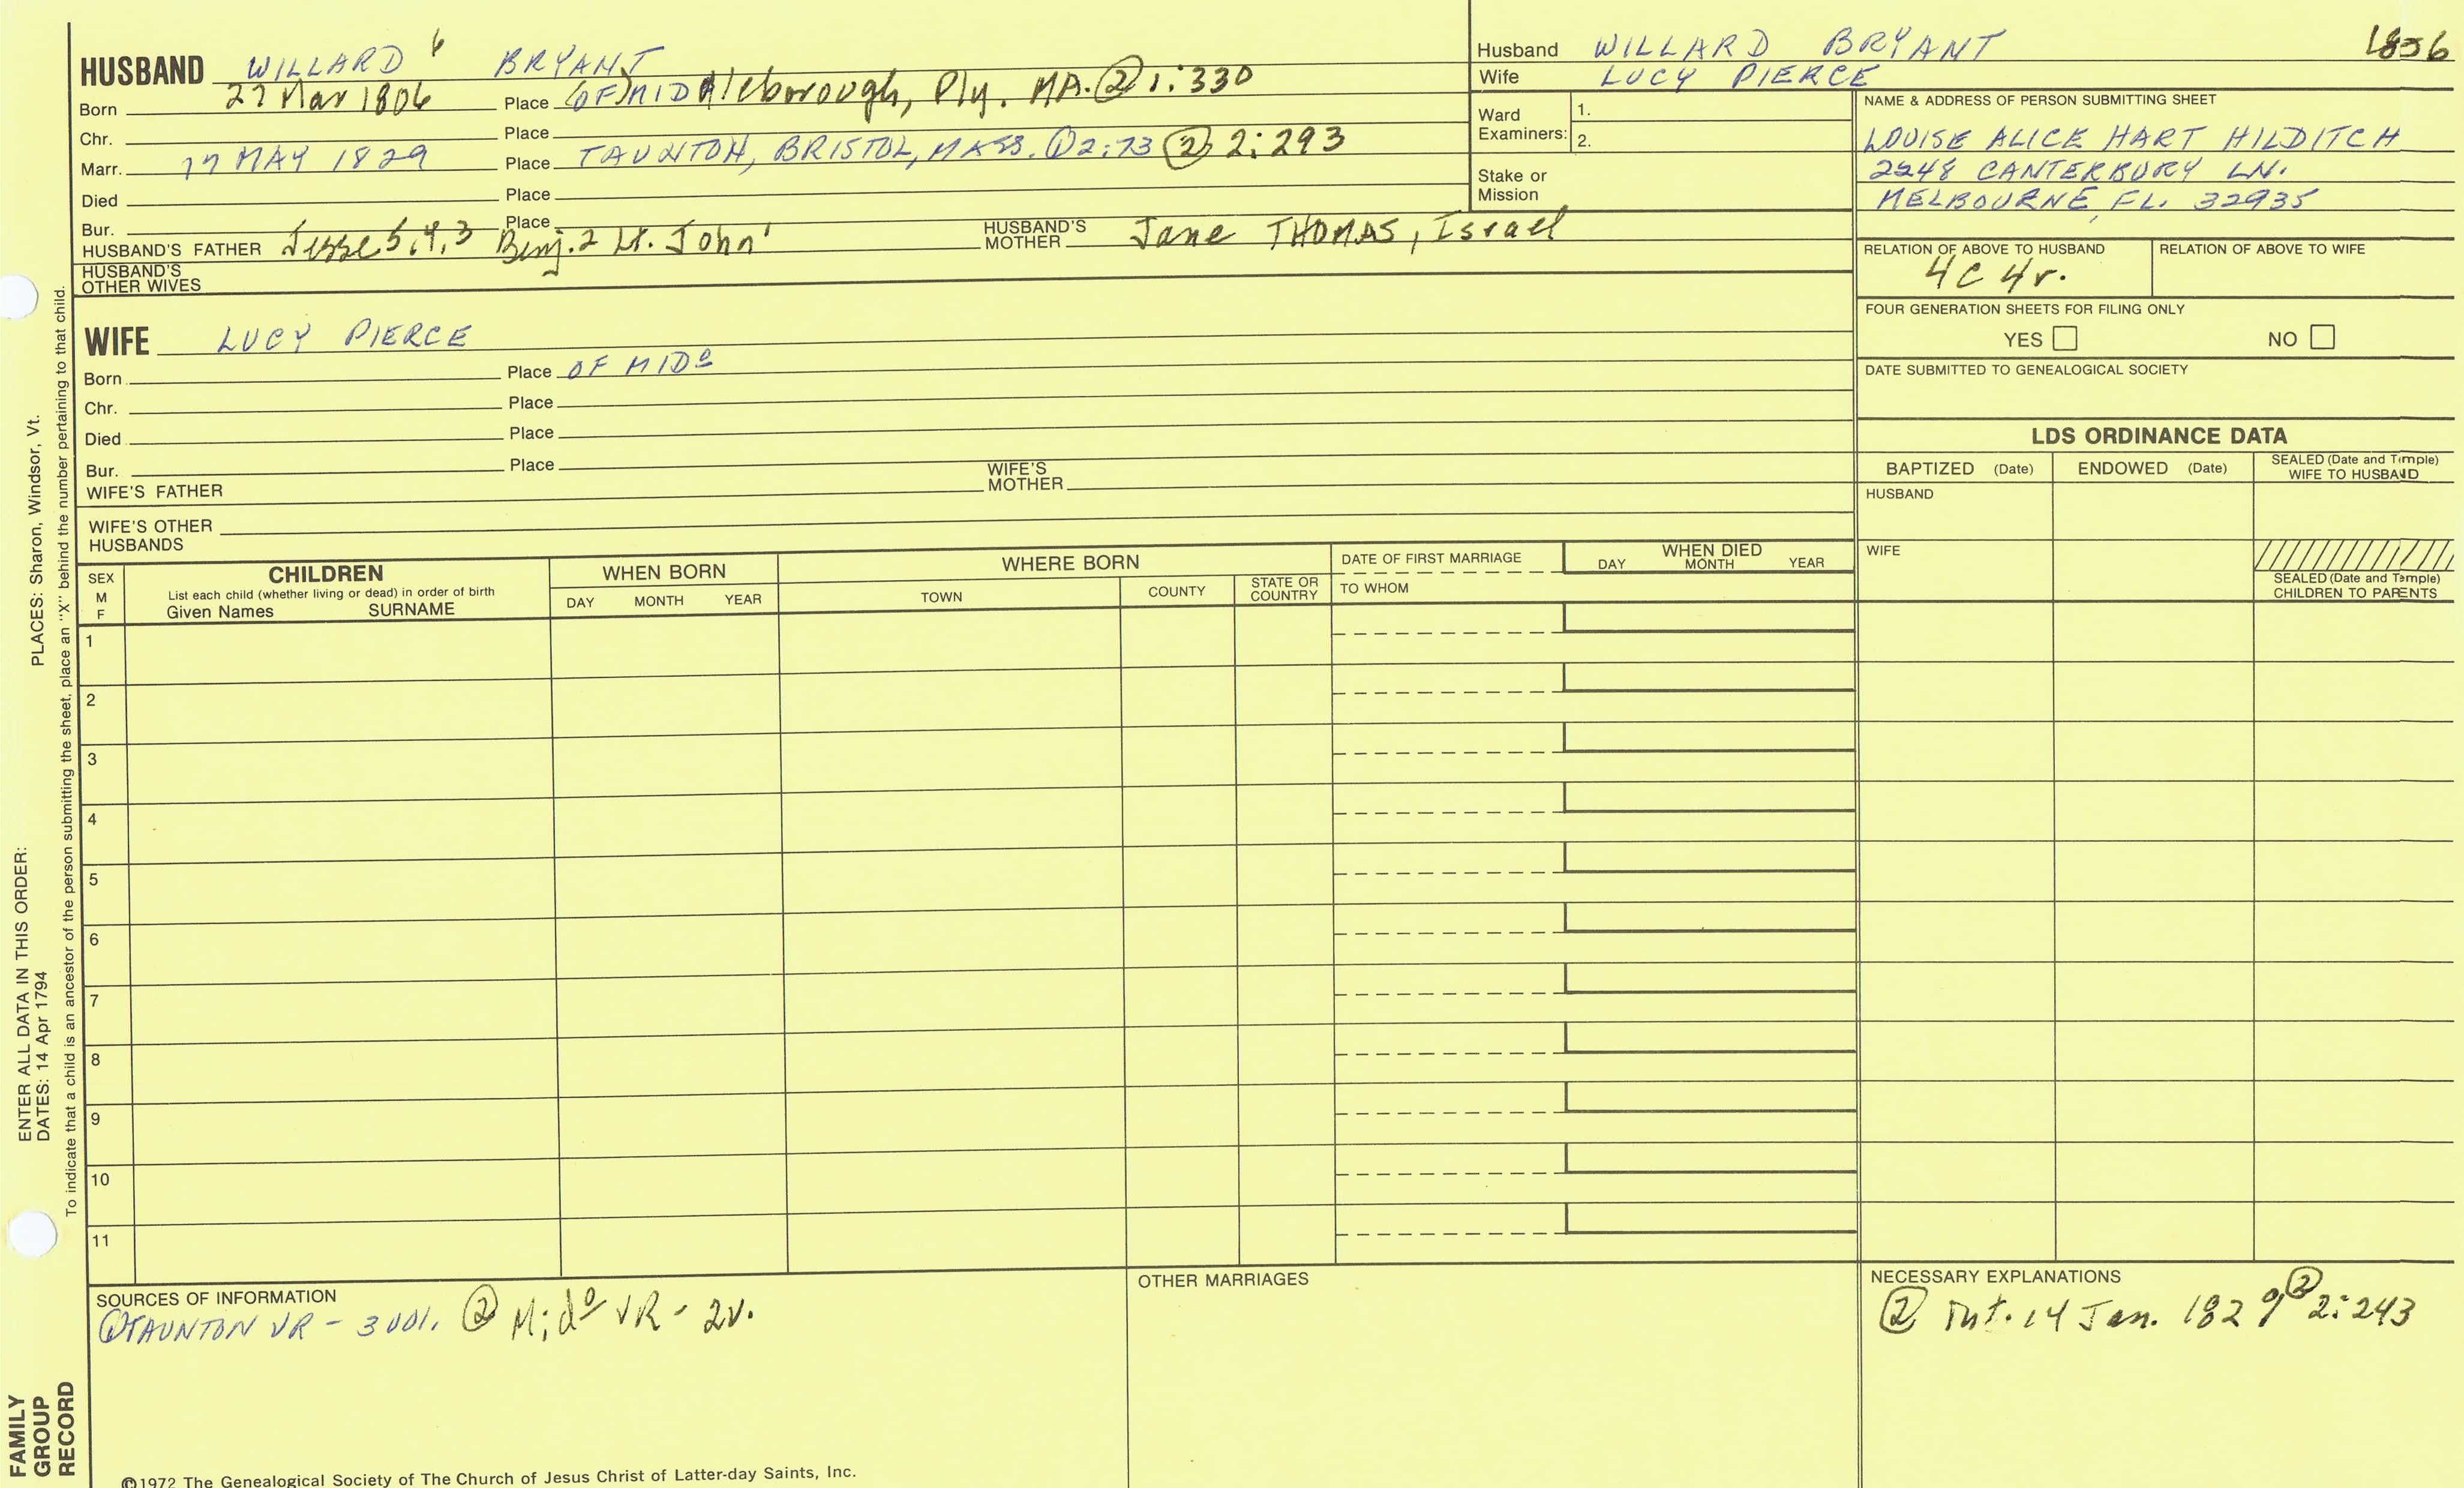 HUSBAND WILLARD 6 BRYANT
Born 27 Mar 1806 Place (OF) MIDdleborough, Ply. MA. ② 1:330
Chr. Place
Marr. 17 MAY 1829 Place TAUNTON, BRISTOL, MASS. ① 2:73 ② 2:293
Died Place
Bur. Place
HUSBAND'S FATHER Jesse 5,4,3 Benj. 2 Lt. John 1 HUSBAND'S MOTHER Jane THOMAS, Israel
HUSBAND'S OTHER WIVES
WIFE LUCY PIERCE
Born Place OF MIDº
Chr. Place
Died Place
Bur. Place
WIFE'S FATHER WIFE'S MOTHER
WIFE'S OTHER HUSBANDS
Husband WILLARD BRYANT 1856
Wife LUCY PIERCE
Ward Examiners: 1.
2.
Stake or Mission
NAME & ADDRESS OF PERSON SUBMITTING SHEET
LOUISE ALICE HART HILDITCH
2248 CANTERBURY LN.
MELBOURNE, FL. 32935
RELATION OF ABOVE TO HUSBAND RELATION OF ABOVE TO WIFE
4C 4r.
FOUR GENERATION SHEETS FOR FILING ONLY
YES NO
DATE SUBMITTED TO GENEALOGICAL SOCIETY
LDS ORDINANCE DATA
BAPTIZED (Date) ENDOWED (Date) SEALED (Date and Temple) WIFE TO HUSBAND
HUSBAND
WIFE
SEALED (Date and Temple) CHILDREN TO PARENTS
SEX M F
CHILDREN
List each child (whether living or dead) in order of birth
Given Names SURNAME
WHEN BORN
DAY MONTH YEAR
WHERE BORN
TOWN COUNTY STATE OR COUNTRY
DATE OF FIRST MARRIAGE
TO WHOM
WHEN DIED
DAY MONTH YEAR
1
2
3
4
5
6
7
8
9
10
11
SOURCES OF INFORMATION
① TAUNTON VR - 3 vol. ② Midº VR - 2v.
OTHER MARRIAGES
NECESSARY EXPLANATIONS
② Int. 14 Jan. 1829 ② 2:243
©1972 The Genealogical Society of The Church of Jesus Christ of Latter-day Saints, Inc.
ENTER ALL DATA IN THIS ORDER:
DATES: 14 Apr 1794
PLACES: Sharon, Windsor, Vt.
To indicate that a child is an ancestor of the person submitting the sheet, place an "X" behind the number pertaining to that child.
FAMILY
GROUP
RECORD